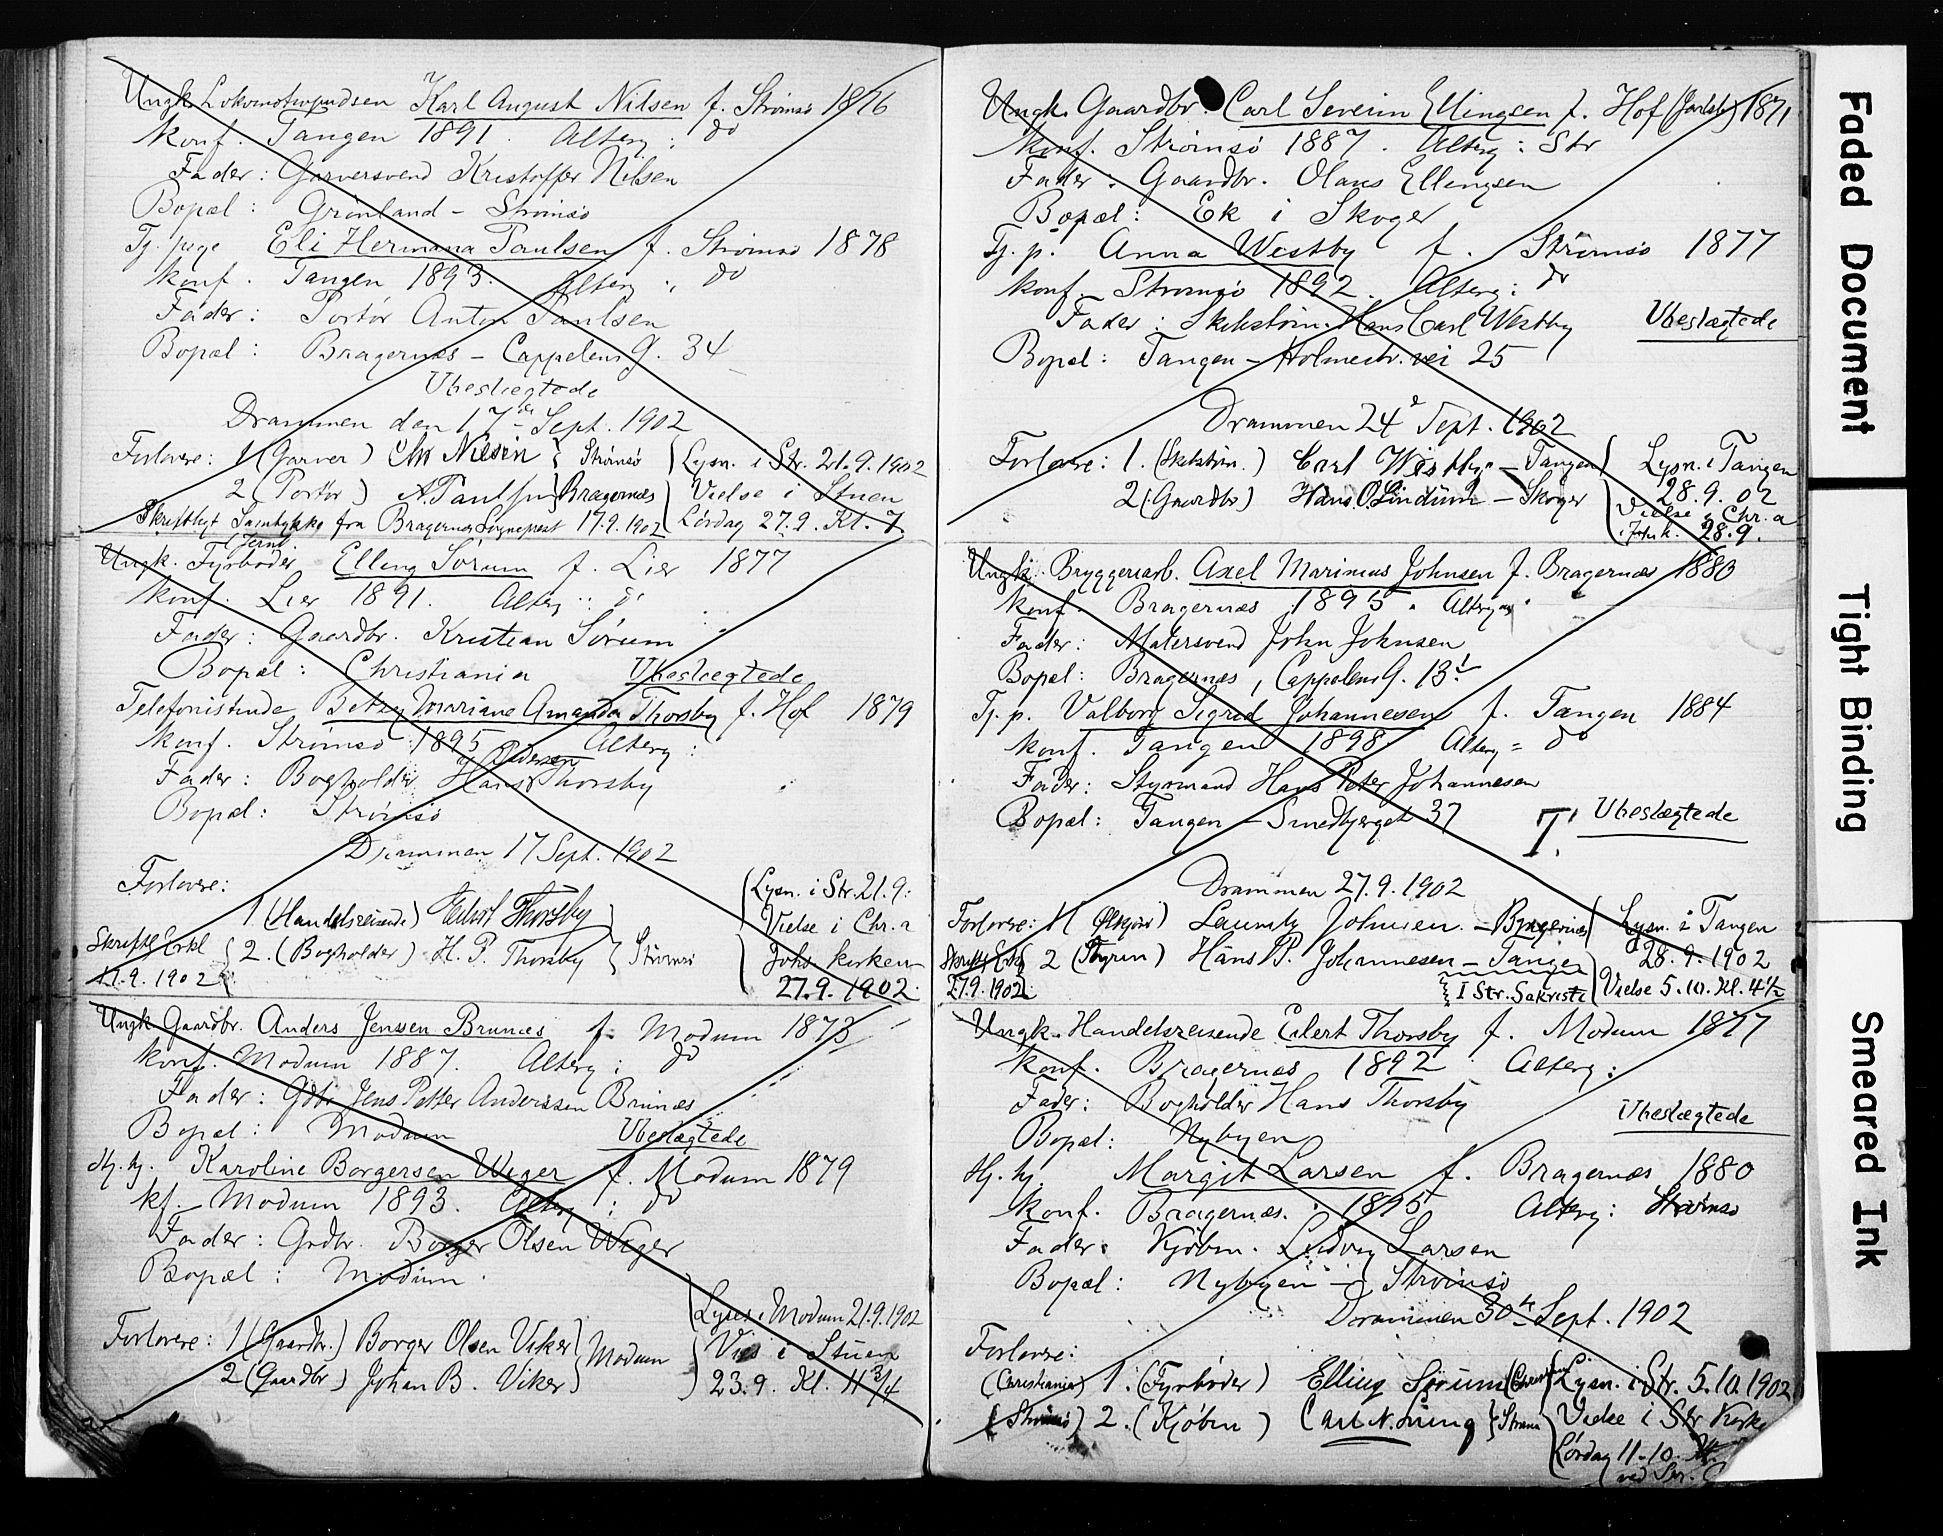 Ungk. Lokomotivpudsen Karl August Nilsen f. Strømsø 1876
Konf. Tangen 1891. Alterg: do
Fader: Garversvend Kristoffer Nilsen
Bopæl: Grönland - Strømsø
Tj. pige Eli Hermana Paulsen f. Strømsø 1878
Konf. Tangen 1893. Alterg: do
Fader: Portör Anton Paulsen
Bopæl: Bragernæs - Cappelens G. 34
Ubeslægtede
Drammen den 17de Sept. 1902
Forlovere: 1 (Garver) Chr Nilsen } Strømsø
2 (Portör) A. Paulsen } Bragernæs
Lysn. i Str. 21.9.1902
Vielse i Stuen
Lørdag 27.9. Kl. 7
Skriftligt Samtykke fra Bragernes Sognepræst 17.9.1902
Ungk. Fyrbøder Elling Sørum f. Lier 1877
Konf. Lier 1891. Alterg: do
Fader: Gaardbr. Kristian Sørum
Bopæl: Christiania Ubeslægtede
Telefonistinde Betzy Mariane Amanda Thorsby f. Hof 1879
Konf. Strømsø 1895 Alterg:
Pedersen
Fader: Bogholder Hans Thorsby
Bopæl: Strømsø
Drammen 17 Sept. 1902
Forlovere:
1 (Handelsreisende) Eilert Thorsby
2. (Bogholder) H. P. Thorsby } Strømsø
Skriftl Erkl
17.9.1902
Lysn. i Str. 21.9.
Vielse i Chr.a
Johs. kirken
27.9.1902.
Ungk Gaardbr. Anders Jenssen Brunæs f. Modum 1873
Konf. Modum 1887. Alterg: do
Fader: Gdbr Jens Petter Anderssen Brunæs
Bopæl: Modum Ubeslægtede
Hj. hj. Karoline Borgersen Weger f. Modum 1879
kf. Modum 1893. Alterg: do
Fader: Grdbr. Borger Olsen Weger
Bopæl: Modum.
Forlovere: 1 (Gaardbr.) Borger Olsen Viker
2 (Gaardbr) Johan B. Viker } Modum
Lyses i Modum 21.9.1902
Vies i Stuen
23.9. Kl. 11 3/4
Ungk. Gaardbr. Carl Severin Ellingsen f. Hof (Jarlsb) 1871
Konf. Strømsö 1887. Alterg: Str
Fader: Gaardbr. Olaus Ellingsen
Bopæl: Ek i Skoger
Tj. p. Anna Westby f. Strømsø 1877
Konf. Strømsö 1892. Alterg: do
Fader: Skibstöm. Hans Carl Westby Ubeslægtede
Bopæl: Tangen - Holmestr. vei 25
Drammen 24de Sept. 1902
Forlovere: 1. (Skibstöm.) Carl Westby - Tangen
2 (Gaardbr) Hans O. Lindum - Skoger
Lysn. i Tangen
28.9.02
Vielse i Chr.a
28.9.
Ungk. Bryggeriarb. Axel Marinius Johnsen f. Bragernæs 1880
Konf. Bragernæs 1895. Alterg:
Fader: Malersvend John Johnsen
Bopæl: Bragernæs, Cappelens G. 13
Tj. p. Valborg Sigrid Johannesen f. Tangen 1884
Konf. Tangen 1898. Alterg = do
Fader: Styrmand Hans Peter Johannesen
Bopæl: Tangen - Smedbjerget 37 T. Ubeslægtede
Drammen 27.9.1902
Forlovere: 1 Lauritz Johnsen. - Bragernæs
2 (Styrm) Hans P. Johannesen - Tangen
Skriftl Erkl
27.9.1902
Lysn. i Tangen
28.9.1902
I Str. Sakristi
Vielse 5.10. Kl. 4 1/2
Ungk. Handelsreisende Eilert Thorsby f. Modum 1877
Konf. Bragernæs 1892 Alterg:
Fader: Bogholder Hans Thorsby
Ubeslægtede
Bopæl: Nybyen
Hj. hj. Margit Larsen f. Bragernæs 1880
Konf. Bragernæs. 1895 Alterg: Strømsø
Fader: Kjöbm. Ludvig Larsen
Bopæl: Nybyen - Strømsö
Drammen 30te Sept. 1902
Forlovere:
(Christiania) 1. (Fyrbøder) Elling Sørum
(Strømsø) 2. (Kjöbm)
Lysn. i Str. 5.10.1902
Vielse i Str Kirke
Lørdag 11.10.
Faded Document
Tight Binding
Smeared Ink